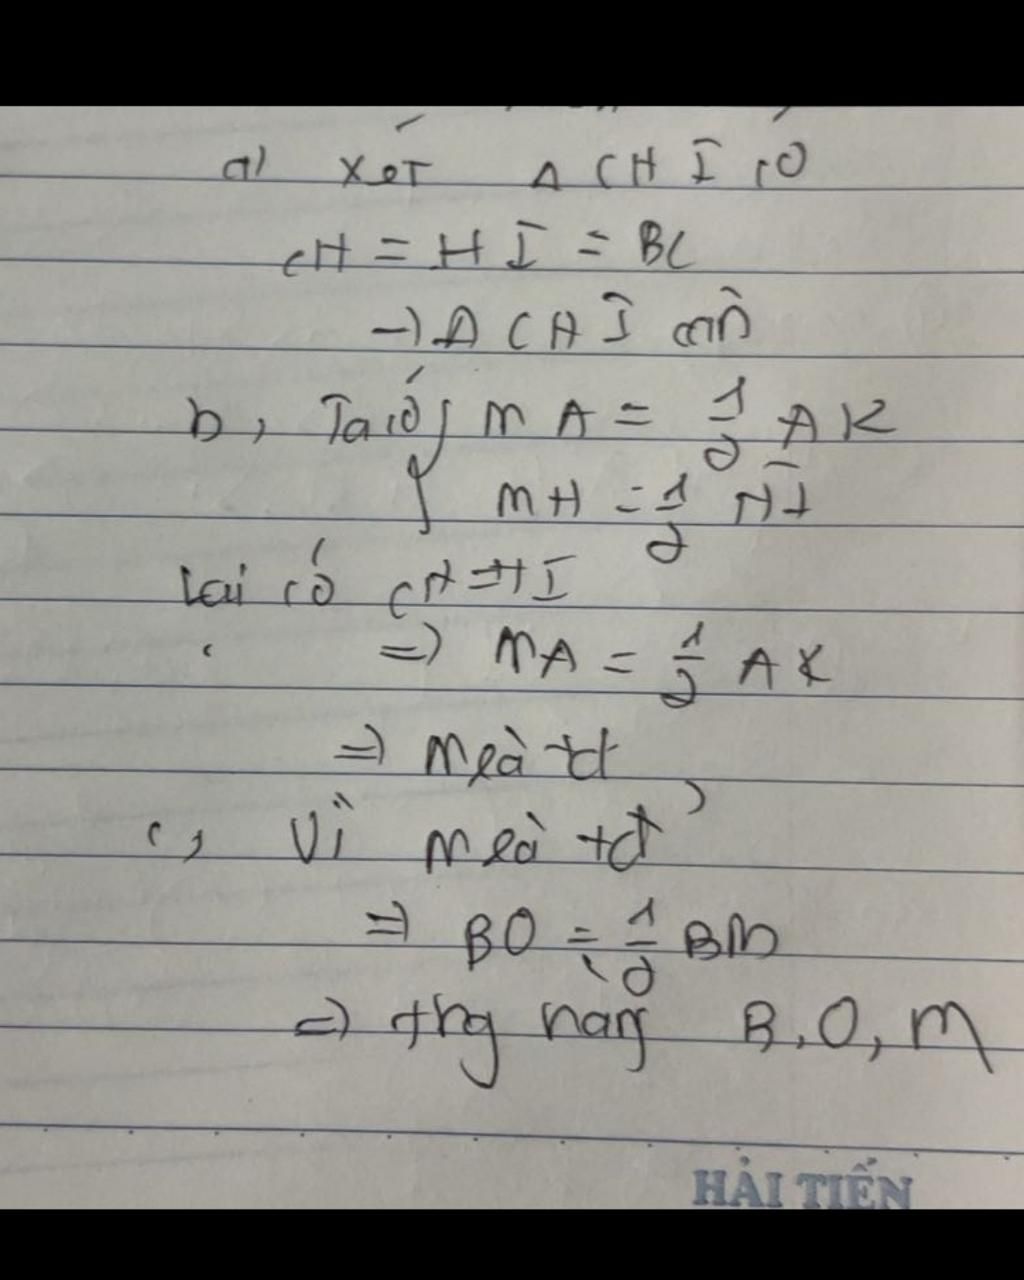 a) Xét Δ CHI có
CH = HI = BC
→ Δ CHI cân
b, Ta có { MA = 1/2 AK
MH = 1/2 HI
Lại có CH = HI
=> MA = 1/2 AK
=> M là tđ
c, Vì M là tđ
=> BO = 1/2 BM
=> thg hàng B, O, M
HẢI TIẾN